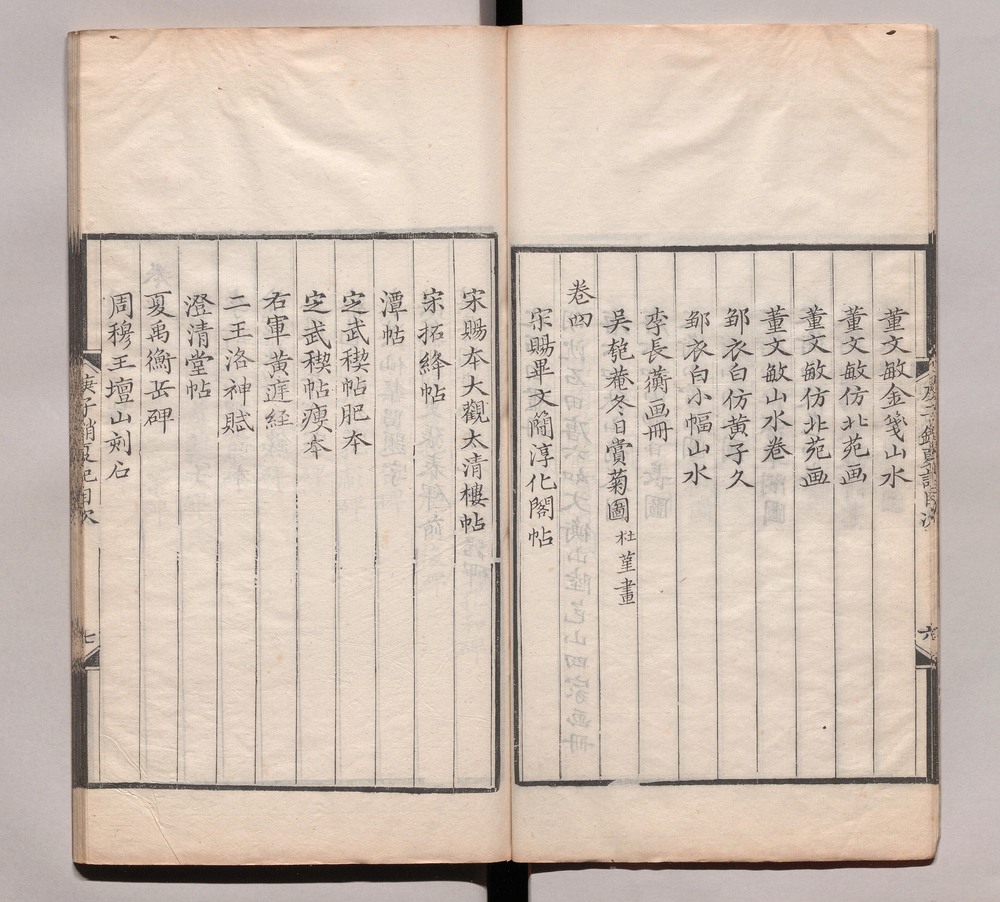 董文敏金箋山水
董文敏仿北苑画
董文敏仿北苑画
董文敏山水卷
邹衣白仿黄子久
邹衣白小幅山水
李長蘅画冊
吴匏菴冬日賞菊圖 杜堇畫
卷四
宋賜畢文簡淳化閣帖
宋賜本大觀太清樓帖
宋拓絳帖
潭帖
定武稧帖肥本
定武稧帖瘦本
右軍黄庭経
二王洛神賦
澄清堂帖
夏禹衡岳碑
周穆王壇山刻石
庚子銷夏記目次
七
六